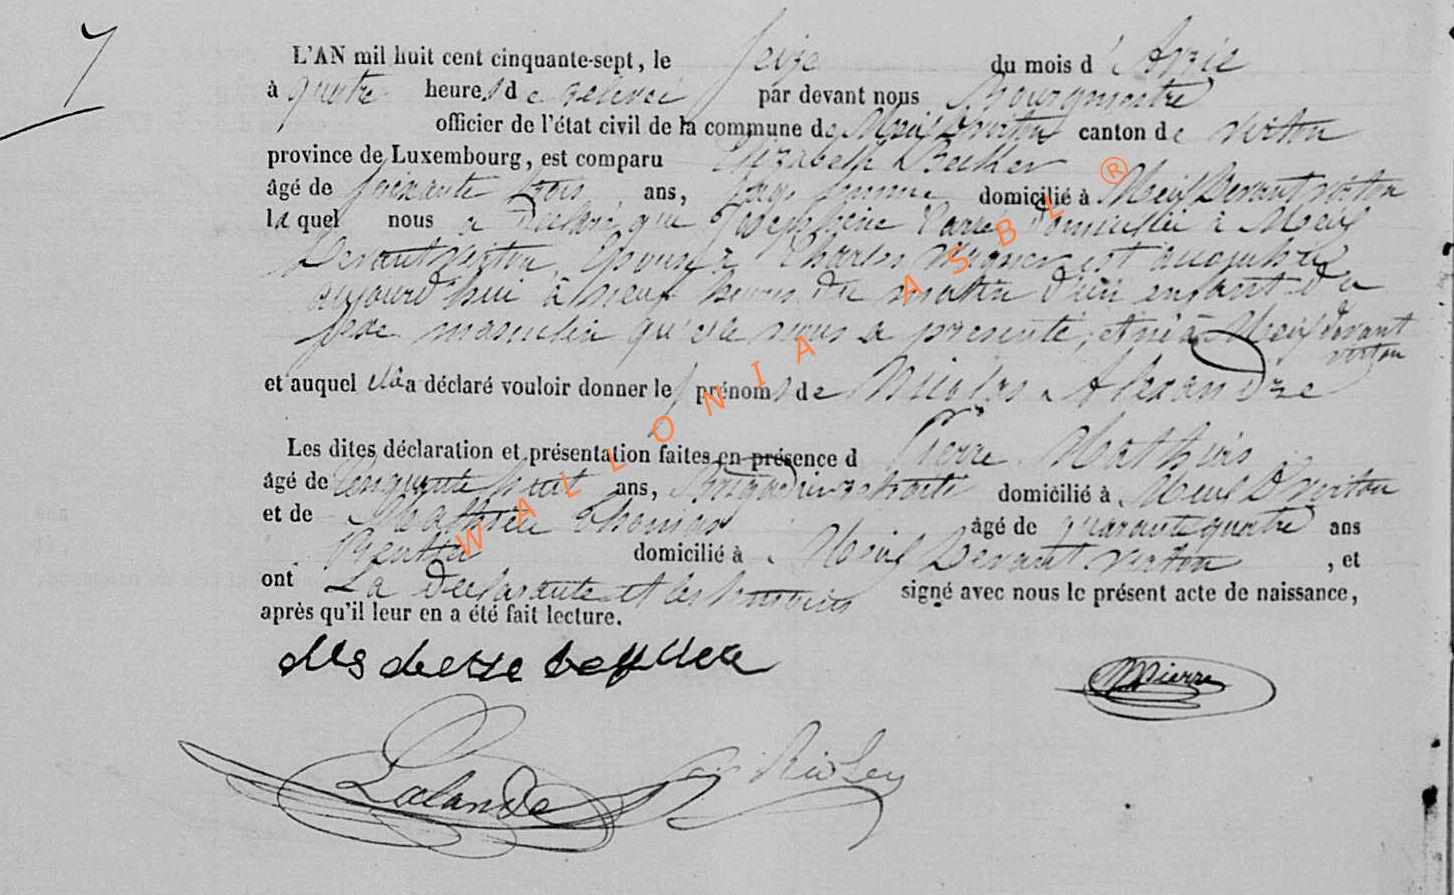 7
L'AN mil huit cent cinquante-sept, le seize du mois d'Avril
à quatre heures de relevée par devant nous Bourgmestre
officier de l'état civil de la commune de Meix Dvirton canton de virton
province de Luxembourg, est comparu Elizabeth
âgé de soixante trois ans, sage femme domicilié à Meix Devant virton
laquel nous a Déclaré que Josephine Domiciliée à Meix
Devant Virton, Epouse à Charles est accouchée
aujourd'hui à neuf heures du matin d'un enfant du
sexe masculin qu'elle nous a présenté, et né à Meix devant
virton
et auquel elle a déclaré vouloir donner les prénoms de Nicolas Alexandre
Les dites déclaration et présentation faites en présence d Pierre Mathieu
âgé de Cinquante huit ans, domicilié à Meix Dvirton
et de Mathieu Thomas âgé de quarante quatre ans
Rentier domicilié à Meix Devant virton, et
ont La Déclarante et les temoins signé avec nous le présent acte de naissance,
après qu'il leur en a été fait lecture.
MPierre
Lalande
WALLONIA ASBL ®